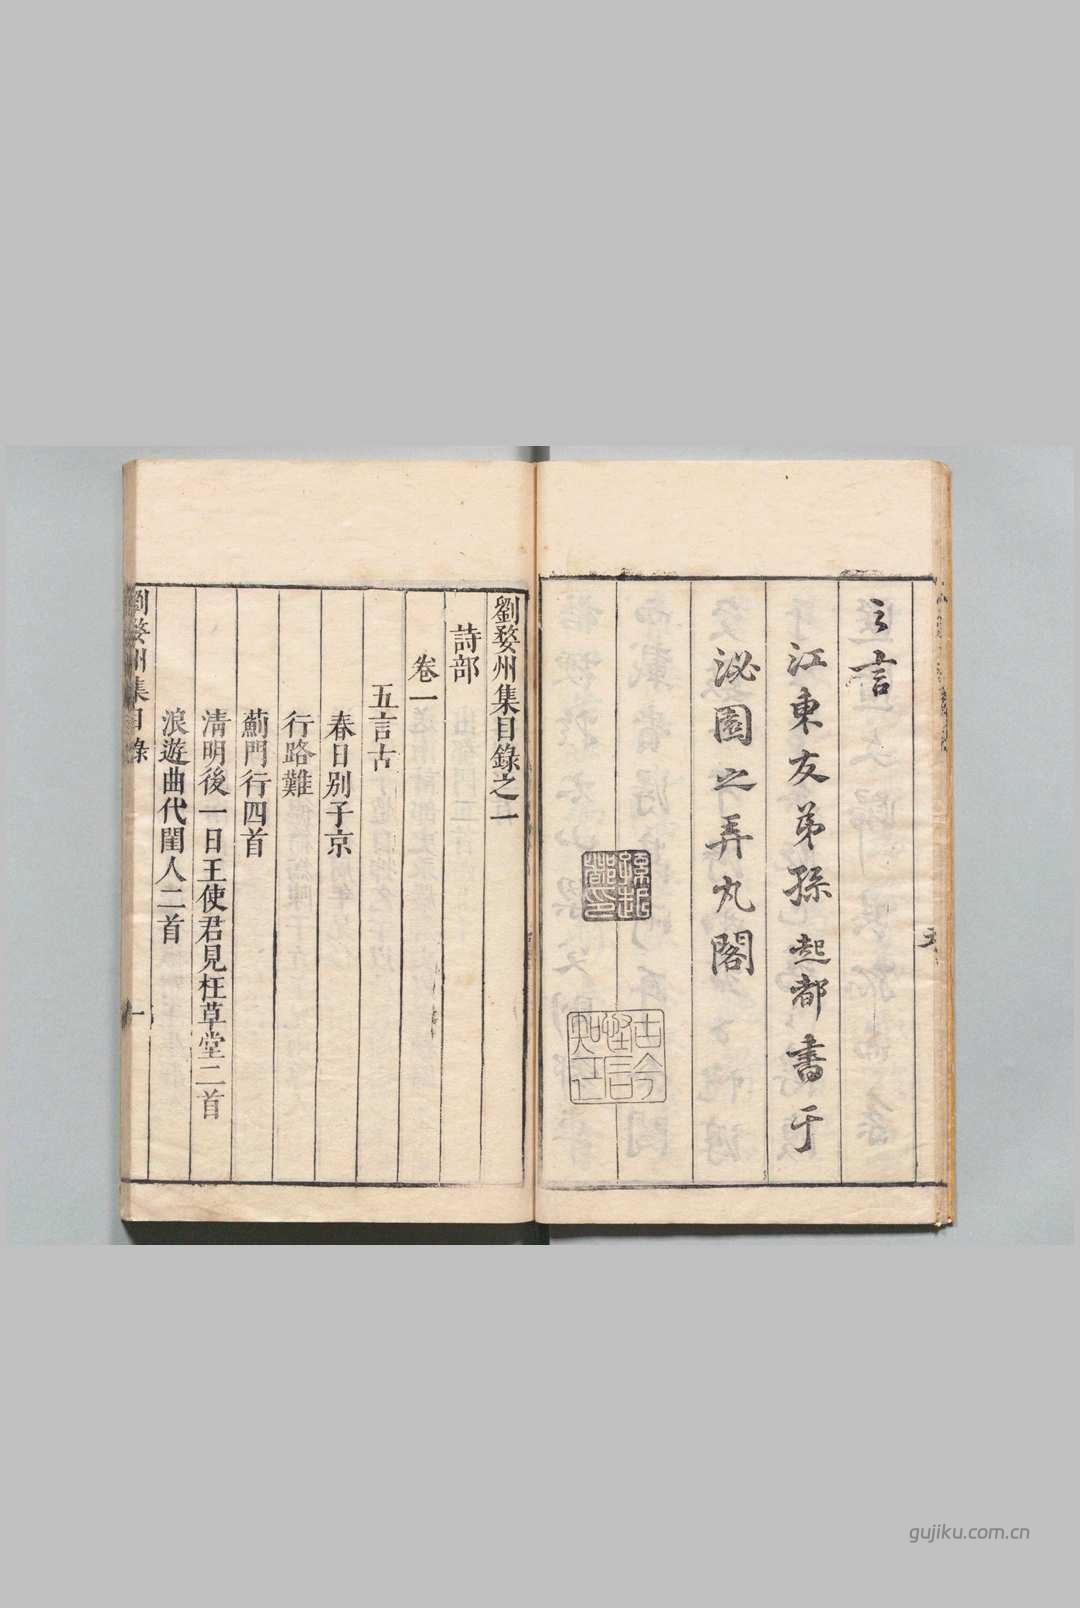 之言
江東友弟孫起都書于
泌園之弄丸閣
孫起都印
劉婺州集目錄之一
詩部
卷一
五言古
春日別子京
行路難
薊門行四首
清明後一日王使君見枉草堂二首
浪遊曲代閨人二首
劉婺州集目錄
一
gujiku.com.cn